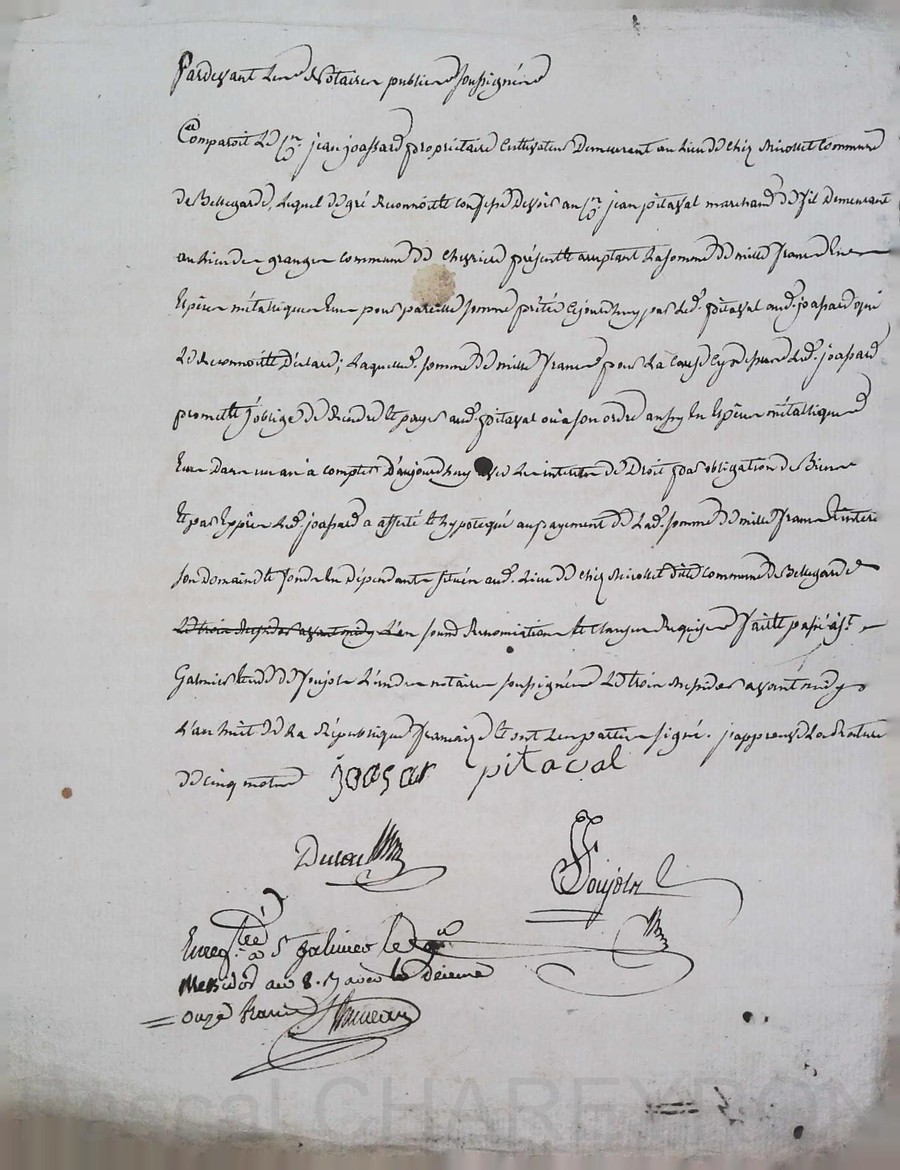 Pardevant les Notaires publics soussignés
Comparoit le Cn. jean joassard propriétaire cultivateur Demeurant au lieu de chez Mirosset Commune
de Bellegarde, lequel de gré Reconnoit et confesse Devoir au Cn. jean pitaval marchand de fil Demeurant
au lieu des granges commune de chevrieres présent et acceptant la somme de mille francs En
Espèces métalliques Pour pareille somme prêtée Cejourdhuy par led. pitaval aud. joassard qui
le Reconnoit et Déclare; Laquelle d. somme de mille francs pour la Cause Cydessus led. joassard
promet et s'oblige de Rendre et payer aud. pitaval ou à son ordre aussy En Espèces métalliques
Dans un an à compter D'aujourdhuy avec les interets de Droit par obligation de Biens
Et par Exprès led. joassard a affecté et hypotequé au payement de lad. somme de mille francs Et interets
son domaine et fonds En dépendants situés aud. Lieu de chez Mirosset dite commune de Bellegarde
Le trois Messidor avant midy L'an sous les Renonciations et clauses Requises fait et passé à St.
Galmier Etude de Soujols L'un des notaires soussignés Le trois Messidor avant midy
L'an huit de la République française et ont les parties signé. j'approuve la Rature
de cinq mots
joasar pitaval
Soujols
Enregistré à St galmier le
Messidor an 8. Reçu avec le Décime
onze francs
Pascal CHAREYRON